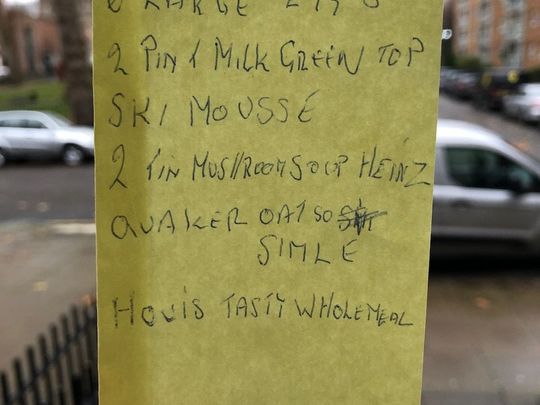 6 LARGE EGGS
2 PINT MILK GREEN TOP
SKI MOUSSÉ
2 TIN MUSHROOM SOUP HEINZ
QUAKER OAT SO
SIMLE
HOVIS TASTY WHOLEMEAL